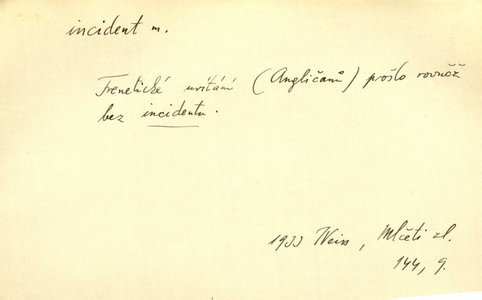 incident m.
Frenetické uvítání (Angličanů) pošlo rovněž
bez incidentu.
1933 Weiss, Mlčeti zl.
144, 9.